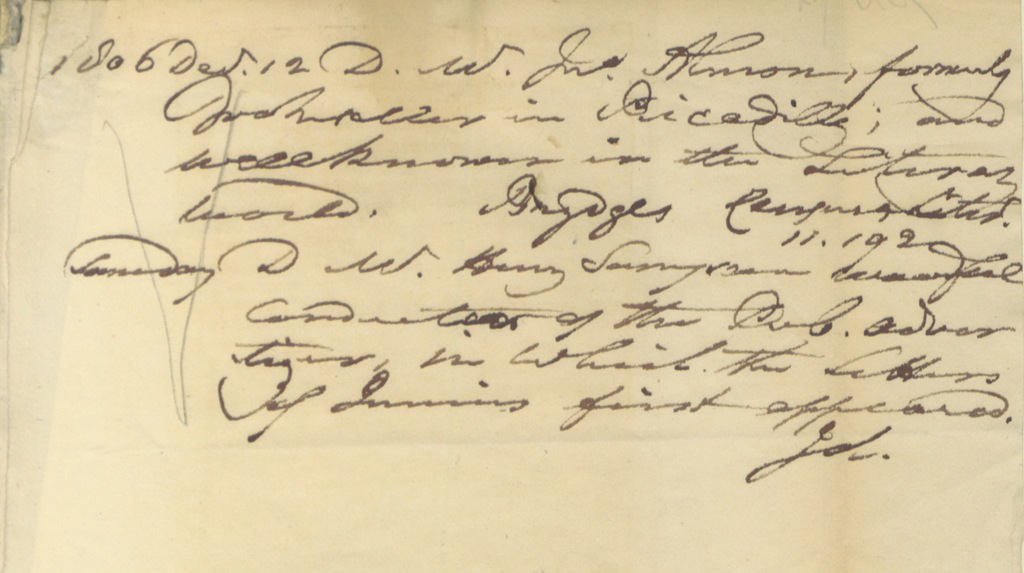 1806 Dec. 12 D. Mr. Jno. Almon, formerly
Bookseller in Piccadilly; and
wellknown in the Literary
world. Brydges Censura Liter.
11. 192
Sameday D Mr. Henry Sampson
conductor of the Pub. adver
tizer, in which the Letters
of Junius first appeared.
Id.